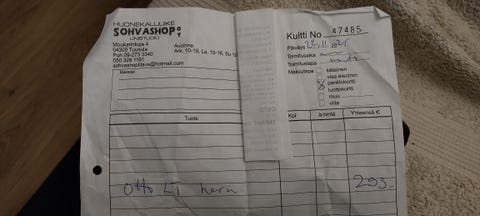 HUONEKALULIIKE
SOHVASHOP OY
UNETUOLI
Moukarinkuja 4
04300 Tuusula
Puh.09-273 3340
050 328 1161
sohvashoptilaus@hotmail.com
Avoinna:
Ark. 10-19, La. 10-16, Su 12
Maksaja
Kuitti No 47485
Päiväys
Toimitusaika
Toimitustapa nouto
Maksutapa
käteinen
visa electron
pankkikortti
luottokortti
muu
viite
Tuote
Kpl
à-hinta
Yhteensä €
Otto LT harm
295.-